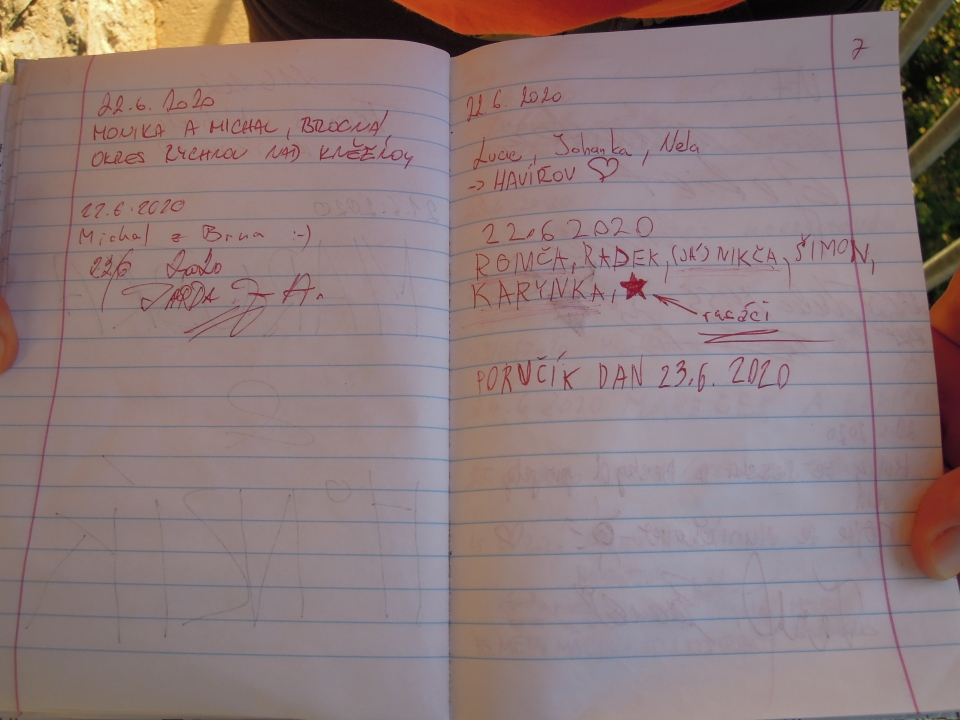 22.6. 2020
MONIKA A MICHAL, BROCNÁ,
OKRES RYCHNOV NAD KNĚŽNOU
22.6.2020
Michal z Brna :-)
22.6 2020
JARDA
7
22.6. 2020
Lucie, Johanka, Nela
-> HAVÍŘOV ♡
22.6 2020
ROMČA, RADEK, (JÁ) NIKČA, ŠIMON,
KARYNKA, ★
PORUČÍK DAN 23.6. 2020